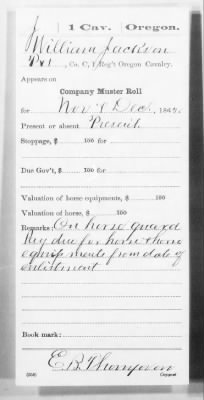 J | 1 Cav. | Oregon.
William Jackson
Pvt, Co. C, 1 Reg't Oregon Cavalry.
Appears on
Company Muster Roll
for Nov & Dec, 186
Present or absent Present
Stoppage, $ 100 for
Due Gov't, $ 100 for
Valuation of horse equipments, $ 100
Valuation of horse, $ 100
Remarks: On horse guard
Pay due for horse & horse
equipments from date of
enlistment
Book mark:
E. B. Thompson
(358) Copyist.